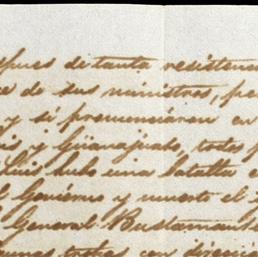 pues de tanta resistenc
de sus ministros, pe
y si pronunciaron en
is y Güanajuato, todos
Luis hubo una batalla e
Goviérno y muerto el
General Bustamant
tropas con direcció